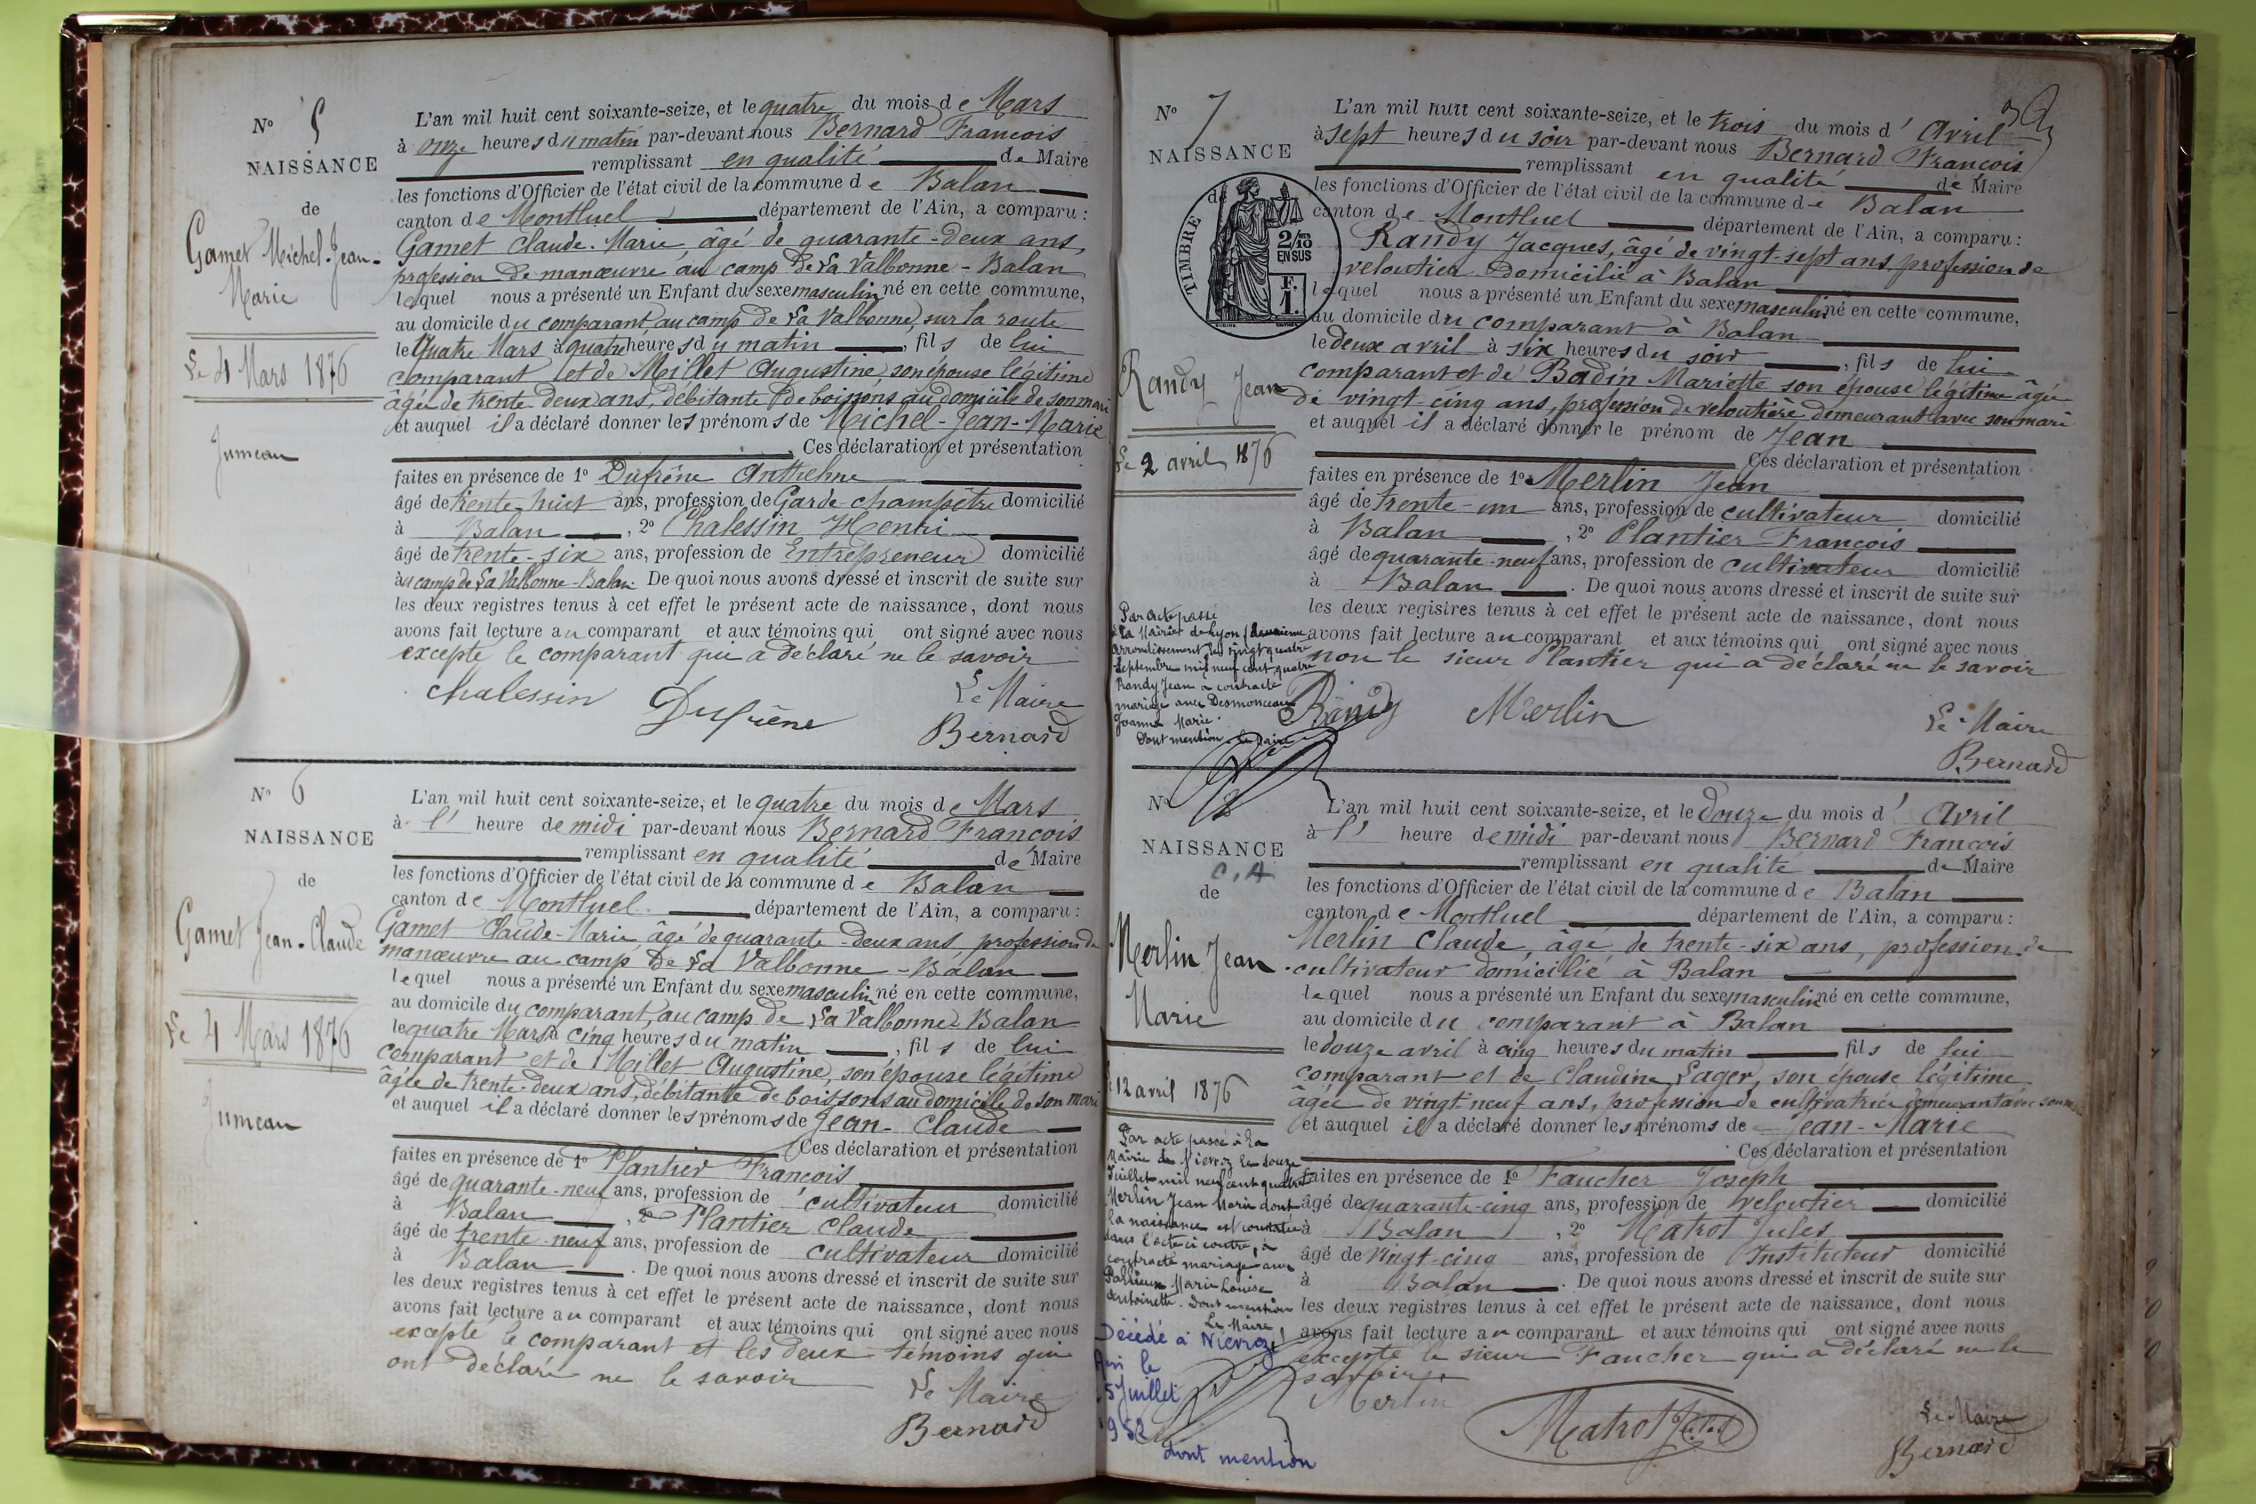 N° 5
NAISSANCE
de
Gamet Michel-Jean-
Marie
Le 4 Mars 1876
Jumeau
L'an mil huit cent soixante-seize, et le quatre du mois de Mars
à onze heures du matin par-devant nous Bernard François
remplissant en qualité de Maire
les fonctions d'Officier de l'état civil de la commune de Balan
canton de Montluel département de l'Ain, a comparu :
Gamet Claude-Marie âgé de quarante-deux ans,
profession de manœuvre au camp de La Valbonne - Balan
lequel nous a présenté un Enfant du sexe masculin né en cette commune,
au domicile du comparant, au camp de La Valbonne, sur la route
le Quatre Mars à quatre heures du matin, fils de lui
comparant et de Millet Augustine son épouse légitime
âgée de trente deux ans, débitante de boissons au domicile de son mari
et auquel il a déclaré donner les prénoms de Michel-Jean-Marie
Ces déclaration et présentation
faites en présence de 1° Dufrêne Anthelme
âgé de trente-huit ans, profession de Garde-champêtre domicilié
à Balan, 2° Chalessin Henri
âgé de trente-six ans, profession de Entrepreneur domicilié
au camp de La Valbonne-Balan. De quoi nous avons dressé et inscrit de suite sur
les deux registres tenus à cet effet le présent acte de naissance, dont nous
avons fait lecture au comparant et aux témoins qui ont signé avec nous
excepté le comparant qui a déclaré ne le savoir
Chalessin Dufrêne Le Maire
Bernard
N° 6
NAISSANCE
de
Gamet Jean-Claude
Le 4 Mars 1876
Jumeau
L'an mil huit cent soixante-seize, et le quatre du mois de Mars
à l' heure de midi par-devant nous Bernard François
remplissant en qualité de Maire
les fonctions d'Officier de l'état civil de la commune de Balan
canton de Montluel département de l'Ain, a comparu :
Gamet Claude-Marie âgé de quarante-deux ans, profession de
manœuvre au camp de La Valbonne - Balan
lequel nous a présenté un Enfant du sexe masculin né en cette commune,
au domicile du comparant, au camp de La Valbonne Balan
le quatre Mars à cinq heures du matin, fils de lui
comparant et de Millet Augustine, son épouse légitime
âgée de trente-deux ans, débitante de boissons au domicile de son mari
et auquel il a déclaré donner les prénoms de Jean-Claude
Ces déclaration et présentation
faites en présence de 1° Plantier François
âgé de quarante-neuf ans, profession de cultivateur domicilié
à Balan, 2° Plantier Claude
âgé de trente-neuf ans, profession de cultivateur domicilié
à Balan. De quoi nous avons dressé et inscrit de suite sur
les deux registres tenus à cet effet le présent acte de naissance, dont nous
avons fait lecture au comparant et aux témoins qui ont signé avec nous
excepté le comparant et les deux témoins qui
ont déclaré ne le savoir
Le Maire
Bernard
N° 7
NAISSANCE
de
TIMBRE
2/10
EN SUS
F.
1.
Randy Jean
Le 2 avril 1876
Par acte passé
à la Mairie de Lyon deuxième
arrondissement le vingt quatre
septembre mil neuf cent quatre
Randy Jean a contracté
mariage avec Desmonceaux
Joanna Marie.
Dont mention. Le Maire
L'an mil huit cent soixante-seize, et le trois du mois d'Avril
à sept heures du soir par-devant nous Bernard François
remplissant en qualité de Maire
les fonctions d'Officier de l'état civil de la commune de Balan
canton de Montluel département de l'Ain, a comparu :
Randy Jacques, âgé de vingt-sept ans, profession de
veloutier domicilié à Balan
lequel nous a présenté un Enfant du sexe masculin né en cette commune,
au domicile du comparant à Balan
le deux avril à six heures du soir, fils de lui
comparant et de Badin Mariette son épouse légitime âgée
de vingt-cinq ans, profession de veloutière demeurant avec son mari
et auquel il a déclaré donner le prénom de Jean
Ces déclaration et présentation
faites en présence de 1° Merlin Jean
âgé de trente-un ans, profession de cultivateur domicilié
à Balan, 2° Plantier François
âgé de quarante-neuf ans, profession de cultivateur domicilié
à Balan. De quoi nous avons dressé et inscrit de suite sur
les deux registres tenus à cet effet le présent acte de naissance, dont nous
avons fait lecture au comparant et aux témoins qui ont signé avec nous
non le sieur Plantier qui a déclaré ne le savoir
Randy Merlin Le Maire
Bernard
N° 8
NAISSANCE
C.A
de
Merlin Jean
Marie
12 avril 1876
Par acte passé à la
Mairie de Nievroz le douze
Juillet mil neuf cent quatre
Merlin Jean Marie dont
la naissance est constatée
dans l'acte ci contre, a
contracté mariage avec
Marie Louise
Antoinette. Dont mention
Le Maire
Décédé à Nievroz
Ain le
5 Juillet
1952
dont mention
L'an mil huit cent soixante-seize, et le douze du mois d'Avril
à l' heure de midi par-devant nous Bernard François
remplissant en qualité de Maire
les fonctions d'Officier de l'état civil de la commune de Balan
canton de Montluel département de l'Ain, a comparu :
Merlin Claude, âgé de trente-six ans, profession de
cultivateur domicilié à Balan
lequel nous a présenté un Enfant du sexe masculin né en cette commune,
au domicile du comparant à Balan
le douze avril à cinq heures du matin fils de lui
comparant et de Claudine Lager, son épouse légitime
âgée de vingt-neuf ans, profession de cultivatrice demeurant avec son mari
et auquel il a déclaré donner les prénoms de Jean-Marie
Ces déclaration et présentation
faites en présence de 1° Faucher Joseph
âgé de quarante-cinq ans, profession de veloutier domicilié
à Balan, 2° Matrot Jules
âgé de vingt-cinq ans, profession de Instituteur domicilié
à Balan. De quoi nous avons dressé et inscrit de suite sur
les deux registres tenus à cet effet le présent acte de naissance, dont nous
avons fait lecture au comparant et aux témoins qui ont signé avec nous
excepté le sieur Faucher qui a déclaré ne le
savoir
Merlin
Matrot Jules
Le Maire
Bernard